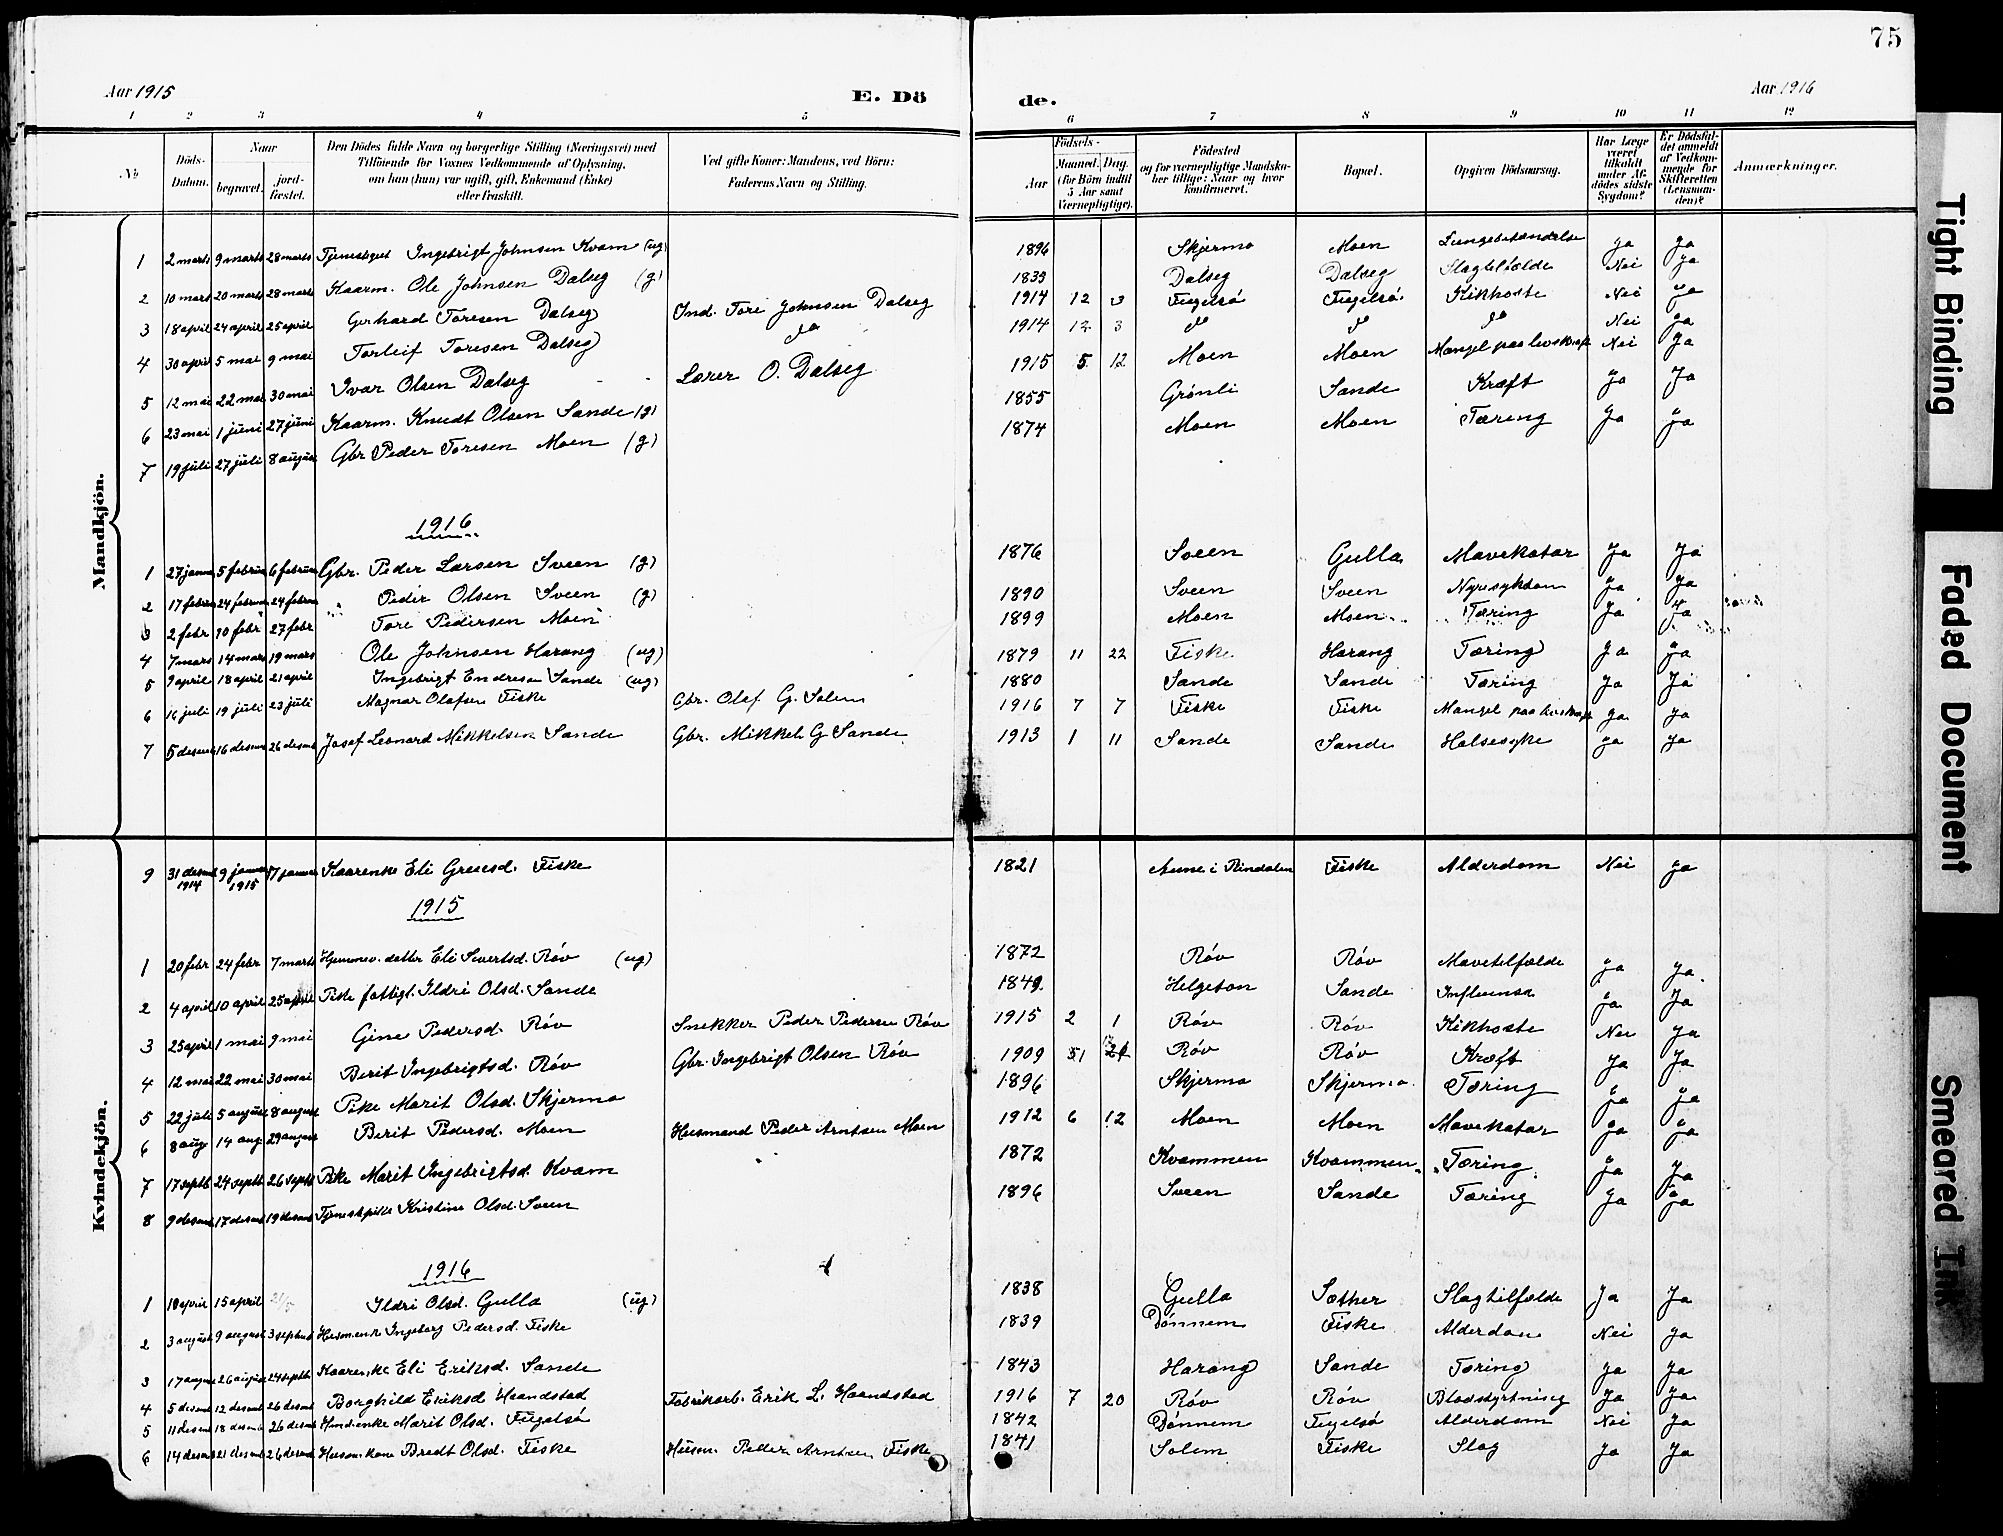 75
Aar 1915
E. Dö
de.
Aar 1916
1 2 3 4 5 6 7 8 9 10 11 12
No
Döds-Datum.
Naar
begravet.
jordfæstet.
Den Dödes fulde Navn og borgerlige Stilling (Næringsvei) med
Tilföiende for Voxnes Vedkommende af Oplysning,
om han (hun) var ugift, gift, Enkemand (Enke)
eller fraskilt.
Ved gifte Koner: Mandens, ved Börn:
Faderens Navn og Stilling.
Födsels-
Aar
Maaned. Dag.
(for Börn indtil
5 Aar samt
Værnepligtige).
Födested
og for værnepligtige Mandskaber tillige: Naar og hvor
konfirmeret.
Bopæl.
Opgiven Dödsaarsag.
Har Læge
været
tilkaldt
under Afdödes sidste
Sygdom?
Er Dödsfaldet anmeldt
af Vedkommende for
Skifteretten
(Lensmanden)?
Anmærkninger.
Mandkjön.
1 2 marts 9 marts 28 marts Tjenestegut Ingebrigt Johnsen Kvam (ug) 1896 Skjermo Moen Lungebetændelse Ja Ja
2 10 mars 20 marts 28 marts Kaarm. Ole Johnsen Dalseg (g) 1833 Dalseg Dalseg Slagtilfælde Nei Ja
3 18 april 24 april 25 april Gerhard Toresen Dalseg Ind. Tore Johnsen Dalseg 1914 12 3 Fugelsö Fugelsö Kikhoste Nei Ja
4 30 april 5 mai 9 mai Torleif Toresen Dalseg do 1914 12 3 do do do Nei Ja
5 12 mai 22 mai 30 mai Ivar Olsen Dalseg Lærer O. Dalseg 1915 5 12 Moen Moen Mangel paa livskraft Nei Ja
6 23 mai 1 juni 27 juni Kaarm. Knudt Olsen Sande (g) 1855 Grönli Sande Kræft Ja Ja
7 19 juli 27 juli 8 august Gbr Peder Toresen Moen (g) 1874 Moen Moen Tæring Ja Ja
1916
1 27 janua 5 februa 6 februa Gbr. Peder Larsen Sveen (g) 1876 Sveen Gulla Mavekatar Ja Ja
2 17 februa 24 februa 24 februa " Peder Olsen Sveen (g) 1890 Sveen Sveen Nyresykdom Ja Ja
3 2 febr 10 febr 27 febr Tore Pedersen Moen 1899 Moen Moen Tæring Ja Ja
4 7 mars 14 mars 19 mars Ole Johnsen Harang (ug) 1879 11 22 Fiske Harang Tæring Ja Ja
5 9 april 18 april 21 april Ingebrigt Endresen Sande (ug) 1880 Sande Sande Tæring Ja Ja
6 16 juli 19 juli 23 juli Magnar Olafsen Fiske Gbr. Olaf G. Solem 1916 7 7 Fiske Fiske Mangel paa livskraft Ja Ja
7 5 desemb 16 desemb 26 desemb Josef Leonard Mikkelsen Sande Gbr. Mikkel G Sande 1913 1 11 Sande Sande Halsesyke Ja Ja
Kvindekjön.
9 31 desemb 1914 9 janua 1915 17 januar Kaarenke Eli Greiesd. Fiske 1821 Aune i Rindalen Fiske Alderdom Nei Ja
1915
1 20 febr 24 febr 7 marts Hjemmev. datter Eli Sivertsd. Röv (ug) 1872 Röv Röv Mavetilfælde Ja Ja
2 4 april 10 april 25 april Pike fattigl. Ildri Olsd. Sande 1849 Helgeton Sande Influensa Ja Ja
3 25 april 1 mai 9 mai Gine Pedersd. Röv Snekker Peder Pedersen Röv 1915 2 1 Röv Röv Kikhoste Nei Ja
4 12 mai 22 mai 30 mai Berit Ingebrigtsd. Röv Gbr. Ingebrigt Olsen Röv 1909 Röv Röv Kræft Ja Ja
5 22 juli 5 august 8 august Pike Marit Olsd. Skjermo 1896 Skjermo Skjermo Tæring Ja Ja
6 8 aug 14 aug 29 august Berit Pedersd. Moen Husmand Peder Arntsen Moen 1912 6 12 Moen Moen Mavekatar Ja Ja
7 17 septb 24 septb 26 septb Pike Marit Ingebrigtsd. Kvam 1872 Kvammen Kvammen Tæring Ja Ja
8 9 desemb 17 desemb 19 desemb Tjenestpike Kristine Olsd. Sveen 1896 Sveen Sande Tæring Ja Ja
1916
1 10 april 15 april 21/5 Ildri Olsd. Gulla (ug) 1838 Gulla Sæther Slagtilfælde Ja Ja
2 3 august 9 august 3 septbr Husmenk Ingeborg Pedersd. Fiske 1839 Dönnem Fiske Alderdom Nei Ja
3 17 august 26 august 24 septb Kaarenke Eli Eriksd. Sande 1843 Harang Sande Tæring Ja Ja
4 5 desemb 12 desemb 26 desemb Borghild Eriksd Haandstad Fabrikarb. Erik L. Haandstad 1916 7 20 Röv Röv Blodstyrtning Ja Ja
5 11 desemb 18 desemb 26 desemb Indenke Marit Olsd. Fugelsö 1842 Dönnem Fugelsö Alderdom Nei Ja
6 14 desemb 21 desemb 26 desemb Husm. kone Bredt Olsd. Fiske Husm. Peder Arntsen Fiske 1841 Solem Fiske Slag Ja Ja
Tight Binding
Faded Document
Smeared Ink